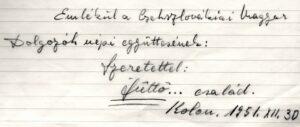 Emlékül a Csehszlovákiai Magyar
Dolgozók népi együttesének:
Szeretettel:
Süttő... család.
Kolon. 1951. XII. 30